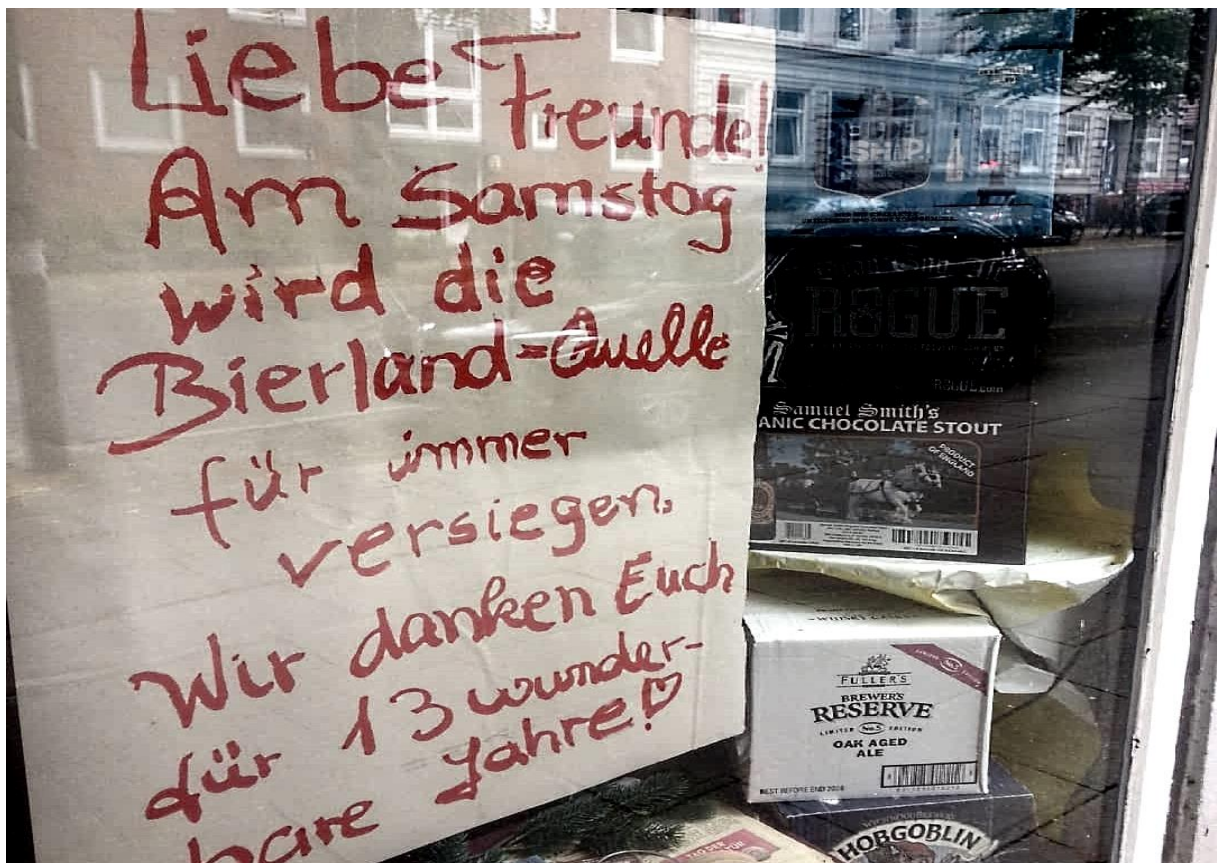 Liebe Freunde!
Am Samstag
wird die
Bierland=Quelle
für immer
versiegen.
Wir danken Euch
für 13 wunder-
bare Jahre!
SHIP
ROGUE
ROGUE.com
Samuel Smith's
ANIC CHOCOLATE STOUT
PRODUCT
OF ENGLAND
FULLER'S
BREWER'S
RESERVE
LIMITED No.5 EDITION
OAK AGED
ALE
BEST BEFORE END
HOBGOBLIN